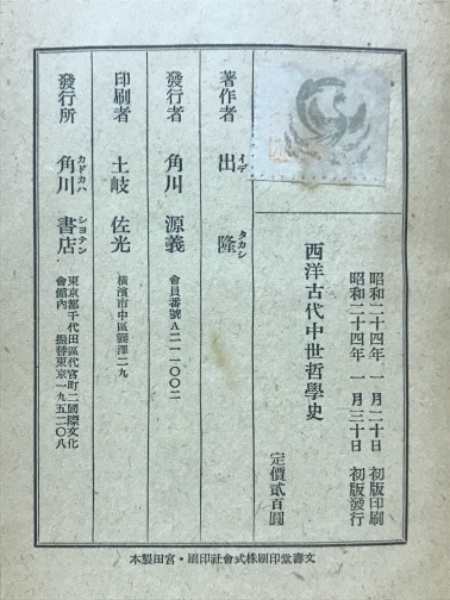 昭和二十四年 一月二十日 初版印刷
昭和二十四年 一月三十日 初版發行
西洋古代中世哲學史
定價貳百圓
著作者 出 隆
イデ タカシ
發行者 角川 源義
會員番號A二一一〇〇二
印刷者 土岐 佐光
横濱市中區 二九
發行所 角川 書店
カドカハ ショテン
東京都千代田區代官町二國際文化
會館內 振替東京一九五二〇八
文壽堂印刷株式會社印刷・宮田製本